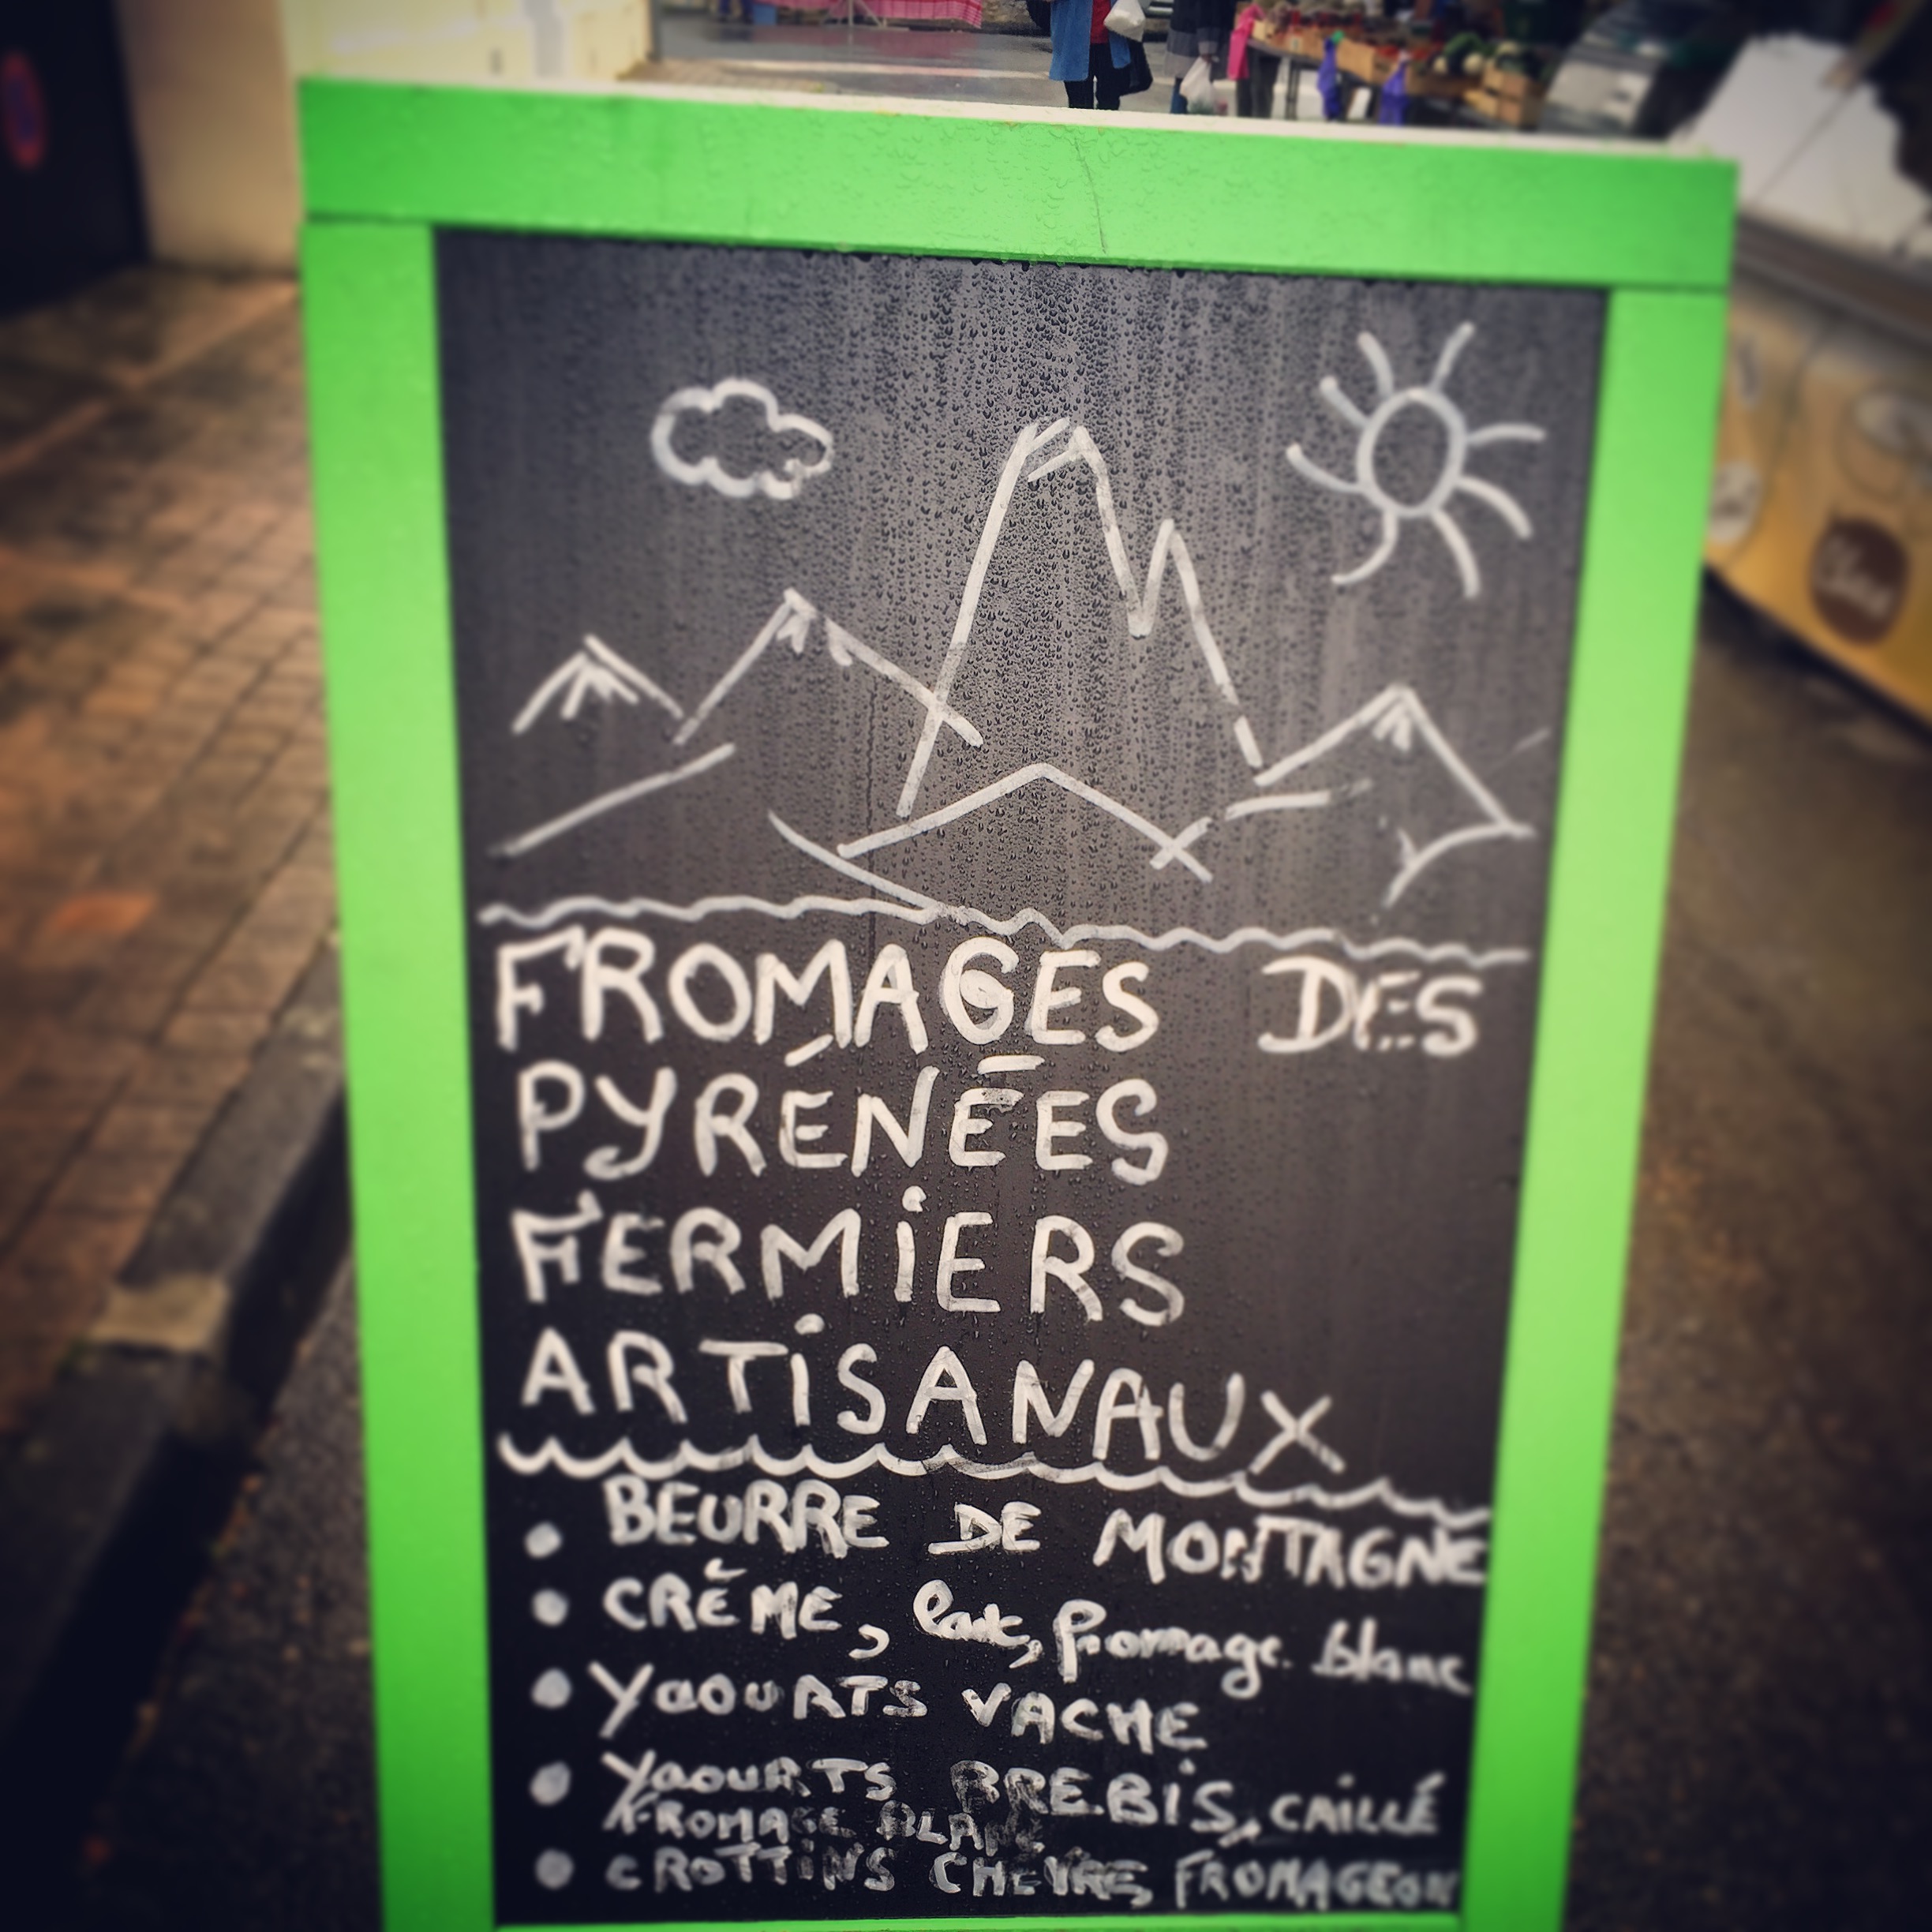 FROMAGES DES
PYRÉNÉES
FERMiERS
ARTiSANAUX
• BEURRE DE MONTAGNE
• CRÈME, lait, fromage blanc
• YaOURTS VACHE
• YaOURTS BREBiS, CAiLLÉ
FROMAGE BLANC
• CROTTiNS CHÈVRE, FROMAGEON